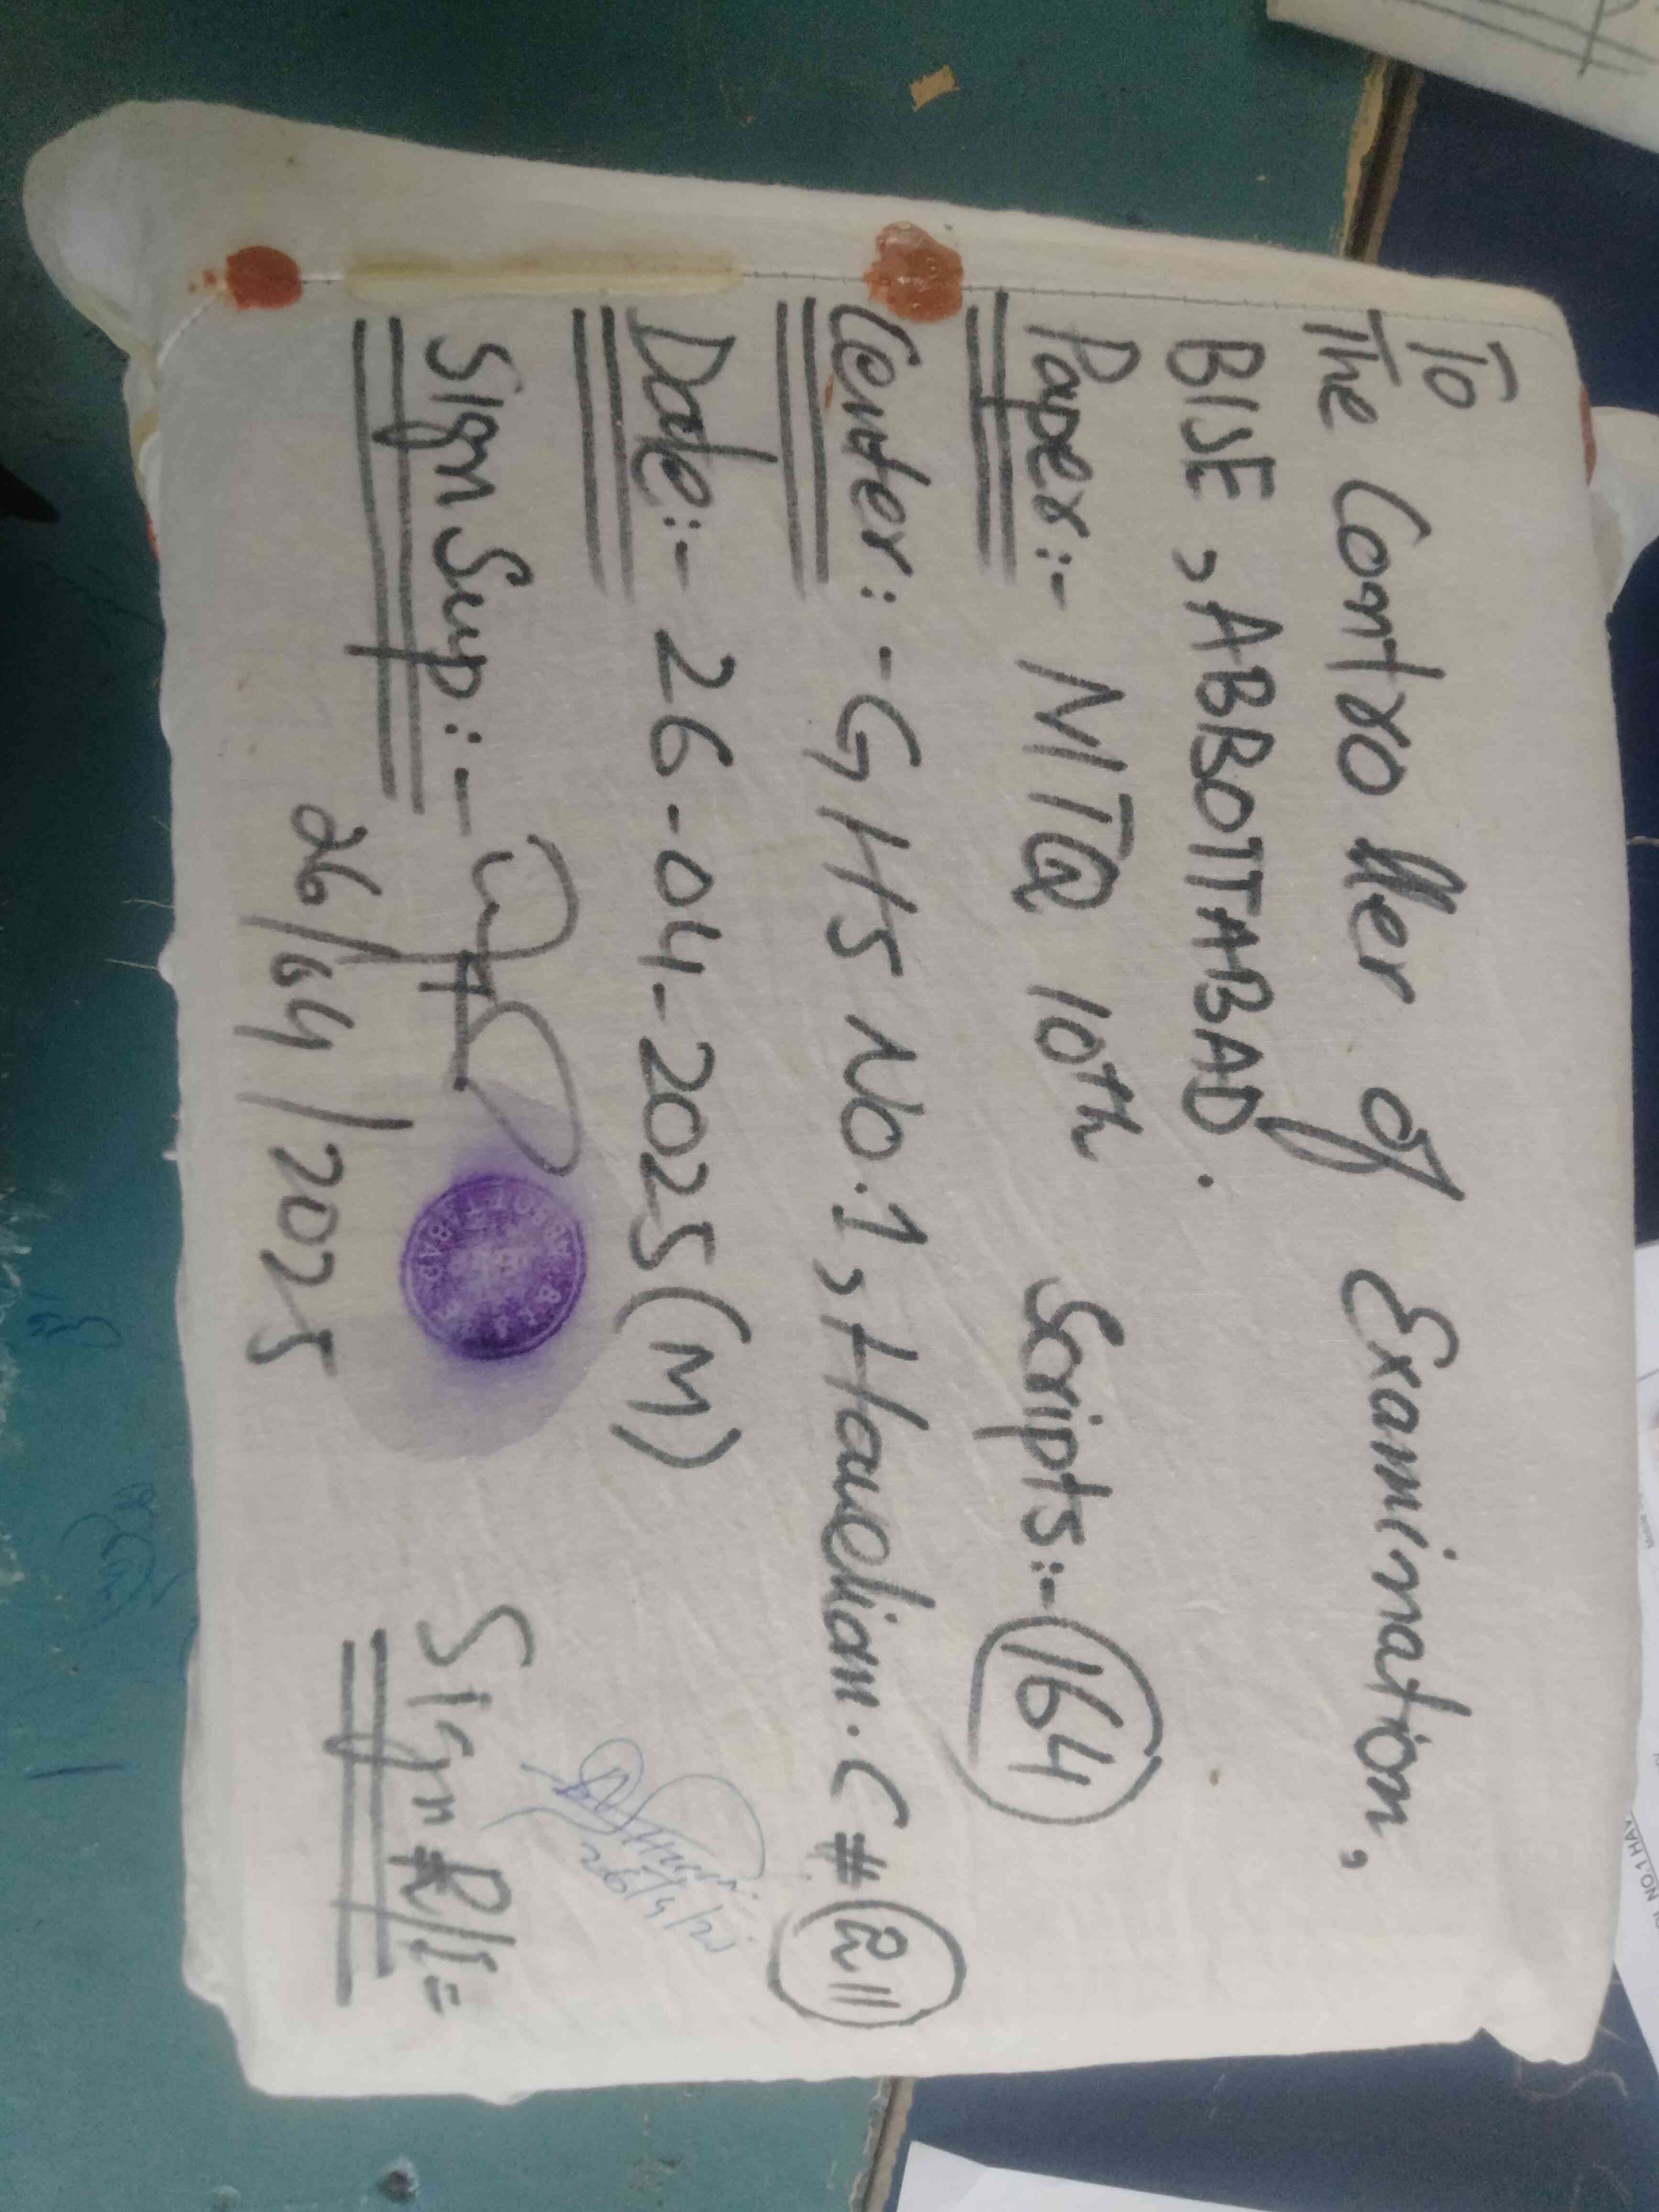 To
The Controller of Examination,
BISE, ABBOTTABAD.
Paper:- MTQ 10th Scripts:- 164
Center:- GHS No.1, Havelian. C # 211
Date:- 26-04-2025(M)
Sign Sup:-
26/04/2025
Sign R/I=
26/4/25
ABBOTTABAD
NO.1 HAV